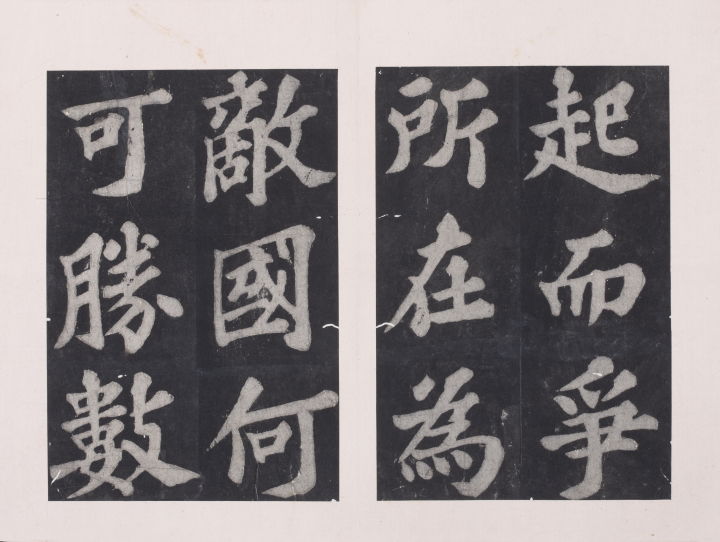 起而爭
所在為
敵國何
可勝數